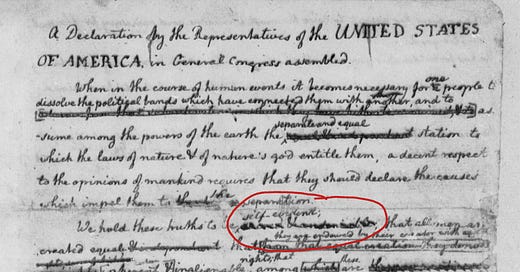 A Declaration by the Representatives of the UNITED STATES
OF AMERICA, in General Congress assembled.
When in the course of human events it becomes necessary for one people to
dissolve the political bands which have connected them with another, and to
as-
separate and equal
-sume among the powers of the earth the station to
which the laws of nature & of nature's god entitle them, a decent respect
to the opinions of mankind requires that they should declare the causes
which impel them to the separation.
self-evident;
We hold these truths to be that all men are
they are endowed by their creator with
created equal & independent that from that equal creation they
rights; that these
& inalienable, among which are the